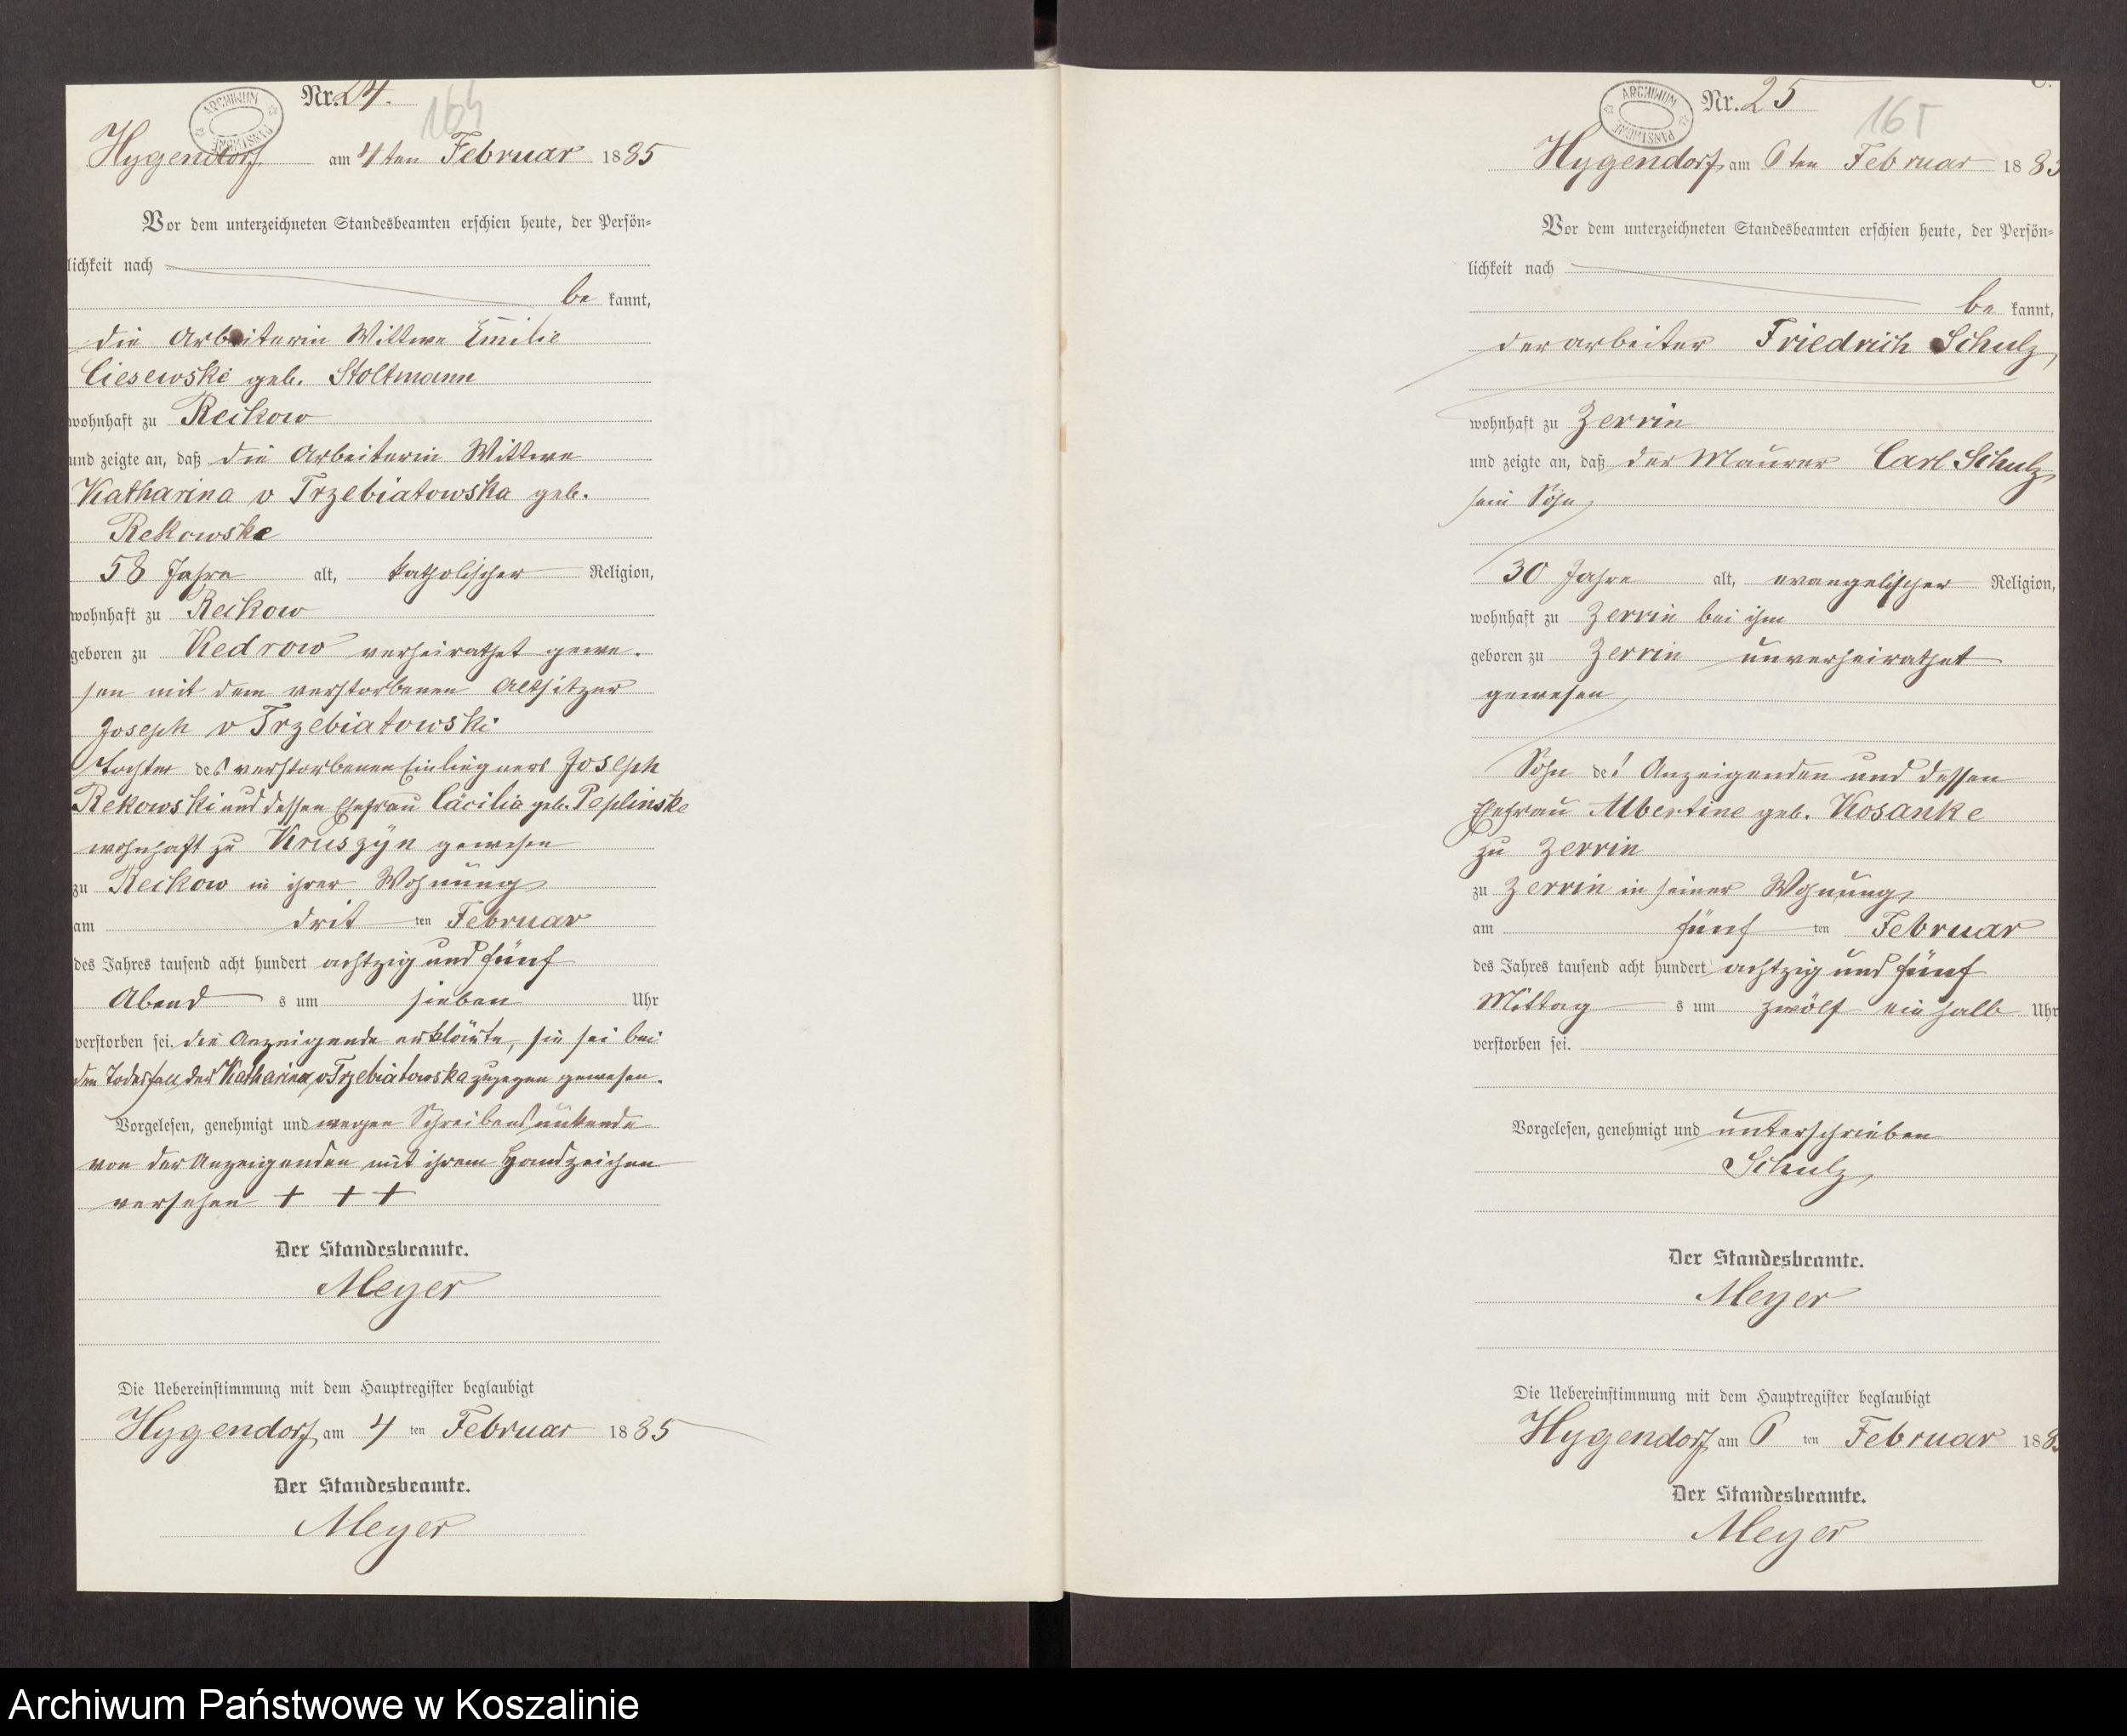 ARCHIWUM PAŃSTWOWE
Nr. 24.
164
Hygendorf am 4 ten Februar 1885
Vor dem unterzeichneten Standesbeamten erschien heute, der Persön-
lichkeit nach
be kannt,
die Arbeiterin Wittwe Emilie
Ciesewski geb. Stoltmann
wohnhaft zu Reckow
und zeigte an, daß die Arbeiterin Wittwe
Katharina v Trzebiatowska geb.
Rekowske
58 Jahre alt, katholischer Religion,
wohnhaft zu Reckow
geboren zu Kedrow verheirathet gewe-
sen mit dem verstorbenen Altsitzer
Joseph v Trzebiatowski
Tochter des verstorbenen Einliegners Joseph
Rekowski und dessen Ehefrau Cäcilia geb. Peplinske
wohnhaft zu Kruszyn gewesen
zu Reckow in ihrer Wohnung
am drit ten Februar
des Jahres tausend acht hundert achtzig und fünf
Abend s um sieben Uhr
verstorben sei. die Anzeigende erklärte, sie sei bei
dem Todesfall der Katharina v Trzebiatowska zugegen gewesen.
Vorgelesen, genehmigt und wegen Schreibens
von der Anzeigenden mit ihrem Handzeichen
versehen + + +
Der Standesbeamte.
Meyer
Die Uebereinstimmung mit dem Hauptregister beglaubigt
Hygendorf am 4 ten Februar 1885
Der Standesbeamte.
Meyer
ARCHIWUM PAŃSTWOWE
Nr. 25
165
Hygendorf am 6 ten Februar 1885
Vor dem unterzeichneten Standesbeamten erschien heute, der Persön-
lichkeit nach
be kannt,
der Arbeiter Friedrich Schulz,
wohnhaft zu Zerrin
und zeigte an, daß der Maurer Carl Schulz,
sein Sohn,
30 Jahre alt, evangelischer Religion,
wohnhaft zu Zerrin bei ihm
geboren zu Zerrin unverheirathet
gewesen,
Sohn des Anzeigenden und dessen
Ehefrau Albertine geb. Kosanke
zu Zerrin
zu Zerrin in seiner Wohnung,
am fünf ten Februar
des Jahres tausend acht hundert achtzig und fünf
Mittag s um zwölf ein halb Uhr
verstorben sei.
Vorgelesen, genehmigt und unterschrieben
Schulz,
Der Standesbeamte.
Meyer
Die Uebereinstimmung mit dem Hauptregister beglaubigt
Hygendorf am 6 ten Februar 188
Der Standesbeamte.
Meyer
Archiwum Państwowe w Koszalinie